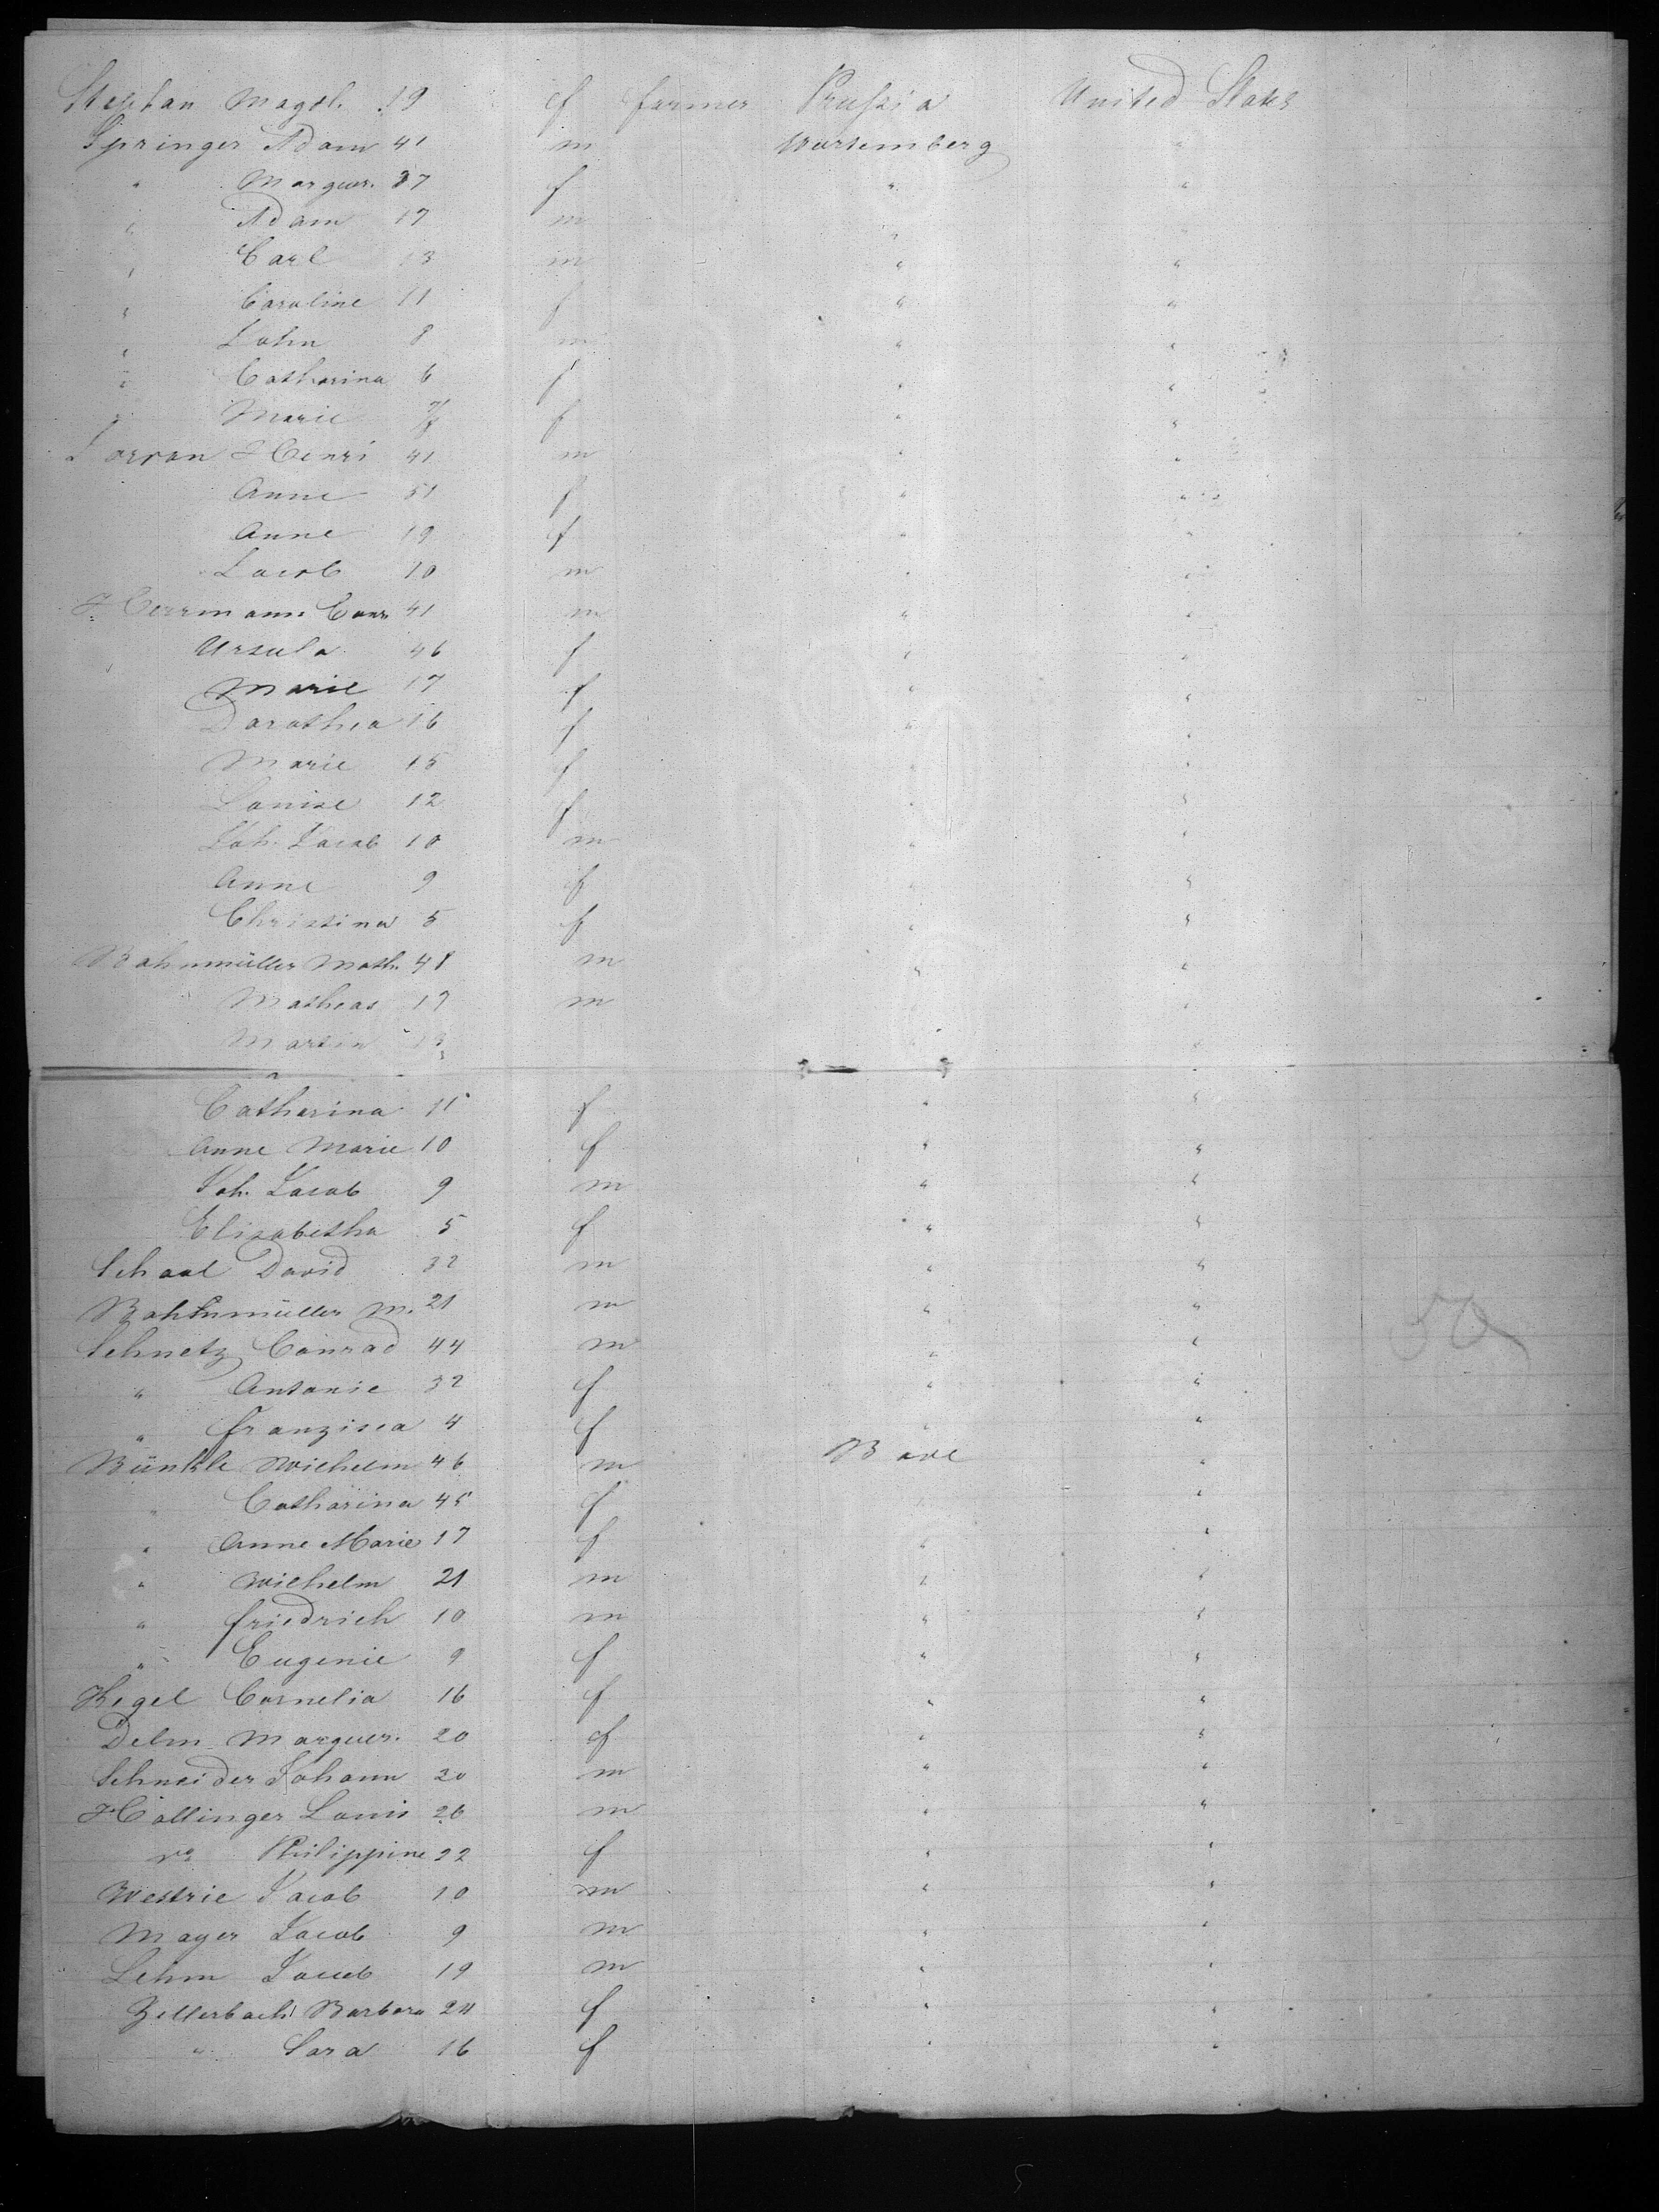 Stephan Magd. 19 f farmer Prussia United States
Springer Adam 41 m Wurtemberg "
" Marguer. 37 f " "
" Adam 17 m "
" Carl 13 m " "
" Caroline 11 f " "
" John 8 m " "
" Catharina 6 f " "
" Marie f " "
Henri 41 m " "
Anne 51 f " "
Anne 19 f " "
Jacob 10 m " "
Herrmann Conr 41 m " "
Ursula 46 f " "
Marie 17 f " "
Dorothea 16 f " "
Marie 15 f " "
Louise 12 f " "
Joh. Jacob 10 m " "
Anne 9 f " "
Christina 5 f " "
Bahnmüller Math. 48 m " "
Matheas 17 m "
Martin 13 "
Catharina 11 f " "
Anne Marie 10 f " "
Joh. Jacob 9 m " "
Elisabetha 5 f " "
Schaal David 32 m " "
Bahnmüller M. 21 m " "
Schnetz Conrad 44 m " "
" Antonie 32 f " "
" Franzisca 4 f " "
Bünkle Wilhelm 46 m "
" Catharina 45 f "
" Anne Marie 17 f " "
" Wilhelm 21 m " "
" Friedrich 10 m " "
" Eugenie 9 f " "
Kegel Cornelia 16 f " "
Delm Marguer. 20 f " "
Schneider Johann 20 m " "
Hollinger Louis 26 m " "
Philippine 22 f " "
Westrie Jacob 10 m " "
Mayer Jacob 9 m " "
Lehm Jacob 19 m " "
Zellerbach Barbara 24 f " "
" Sara 16 f " "